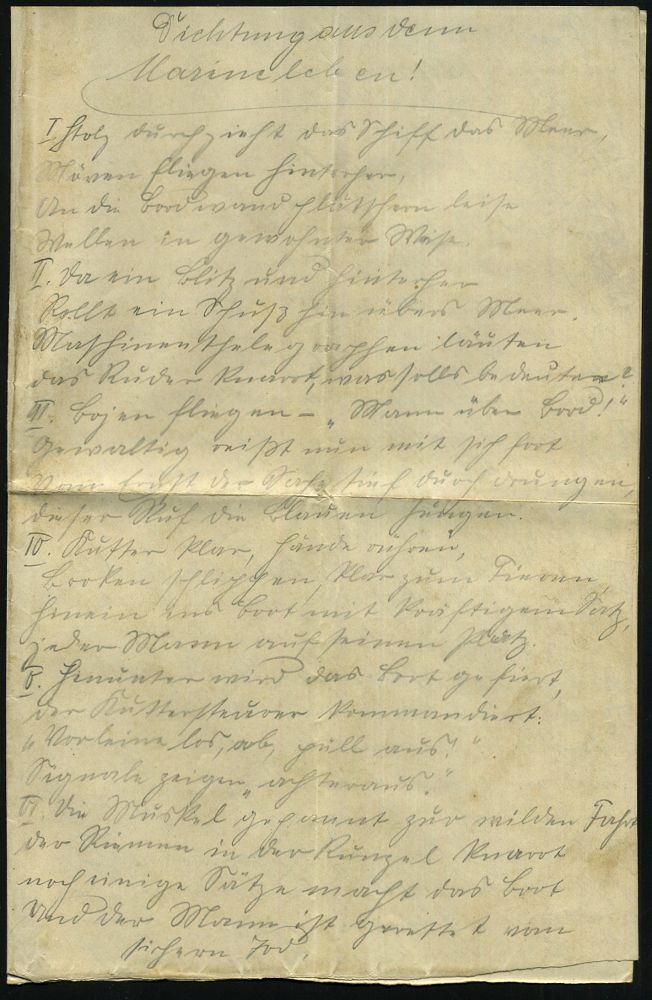 Dichtung aus dem
Marineleben!
I Stolz durchzieht das Schiff das Meer,
Möven fliegen hinterher,
An die Bordwand plätschern leise
Wellen in gewohnter Weise.
II. Da ein Blitz und hinterher
Rollt ein Schuß hin übers Meer.
Maschinenthelegraphen läuten
das Ruder knarrt, was solls bedeuten?
III. Bojen fliegen – „Mann über Bord!"
Gewaltig reißt nun mit sich fort
Vom Ernst der Sache tief durchdrungen,
dieser Ruf die blauen Jungen.
IV. Kutter klar, Hände rühren,
Brooken schlippen, klar zum Fieren
hinein ins Boot mit kräftigem Satz,
jeder Mann auf seinen Platz.
V. Hinunter wird das Boot gefiert,
der Kuttersteurer kommandiert:
„Vorleine los, ab, pull aus!"
Signale zeigen „achteraus."
VI. Die Muskel gespannt zur wilden Fahrt
der Riemen in der Runzel knarrt
noch einige Sätze macht das Boot
Und der Mann ist gerettet vom
sichern Tod.